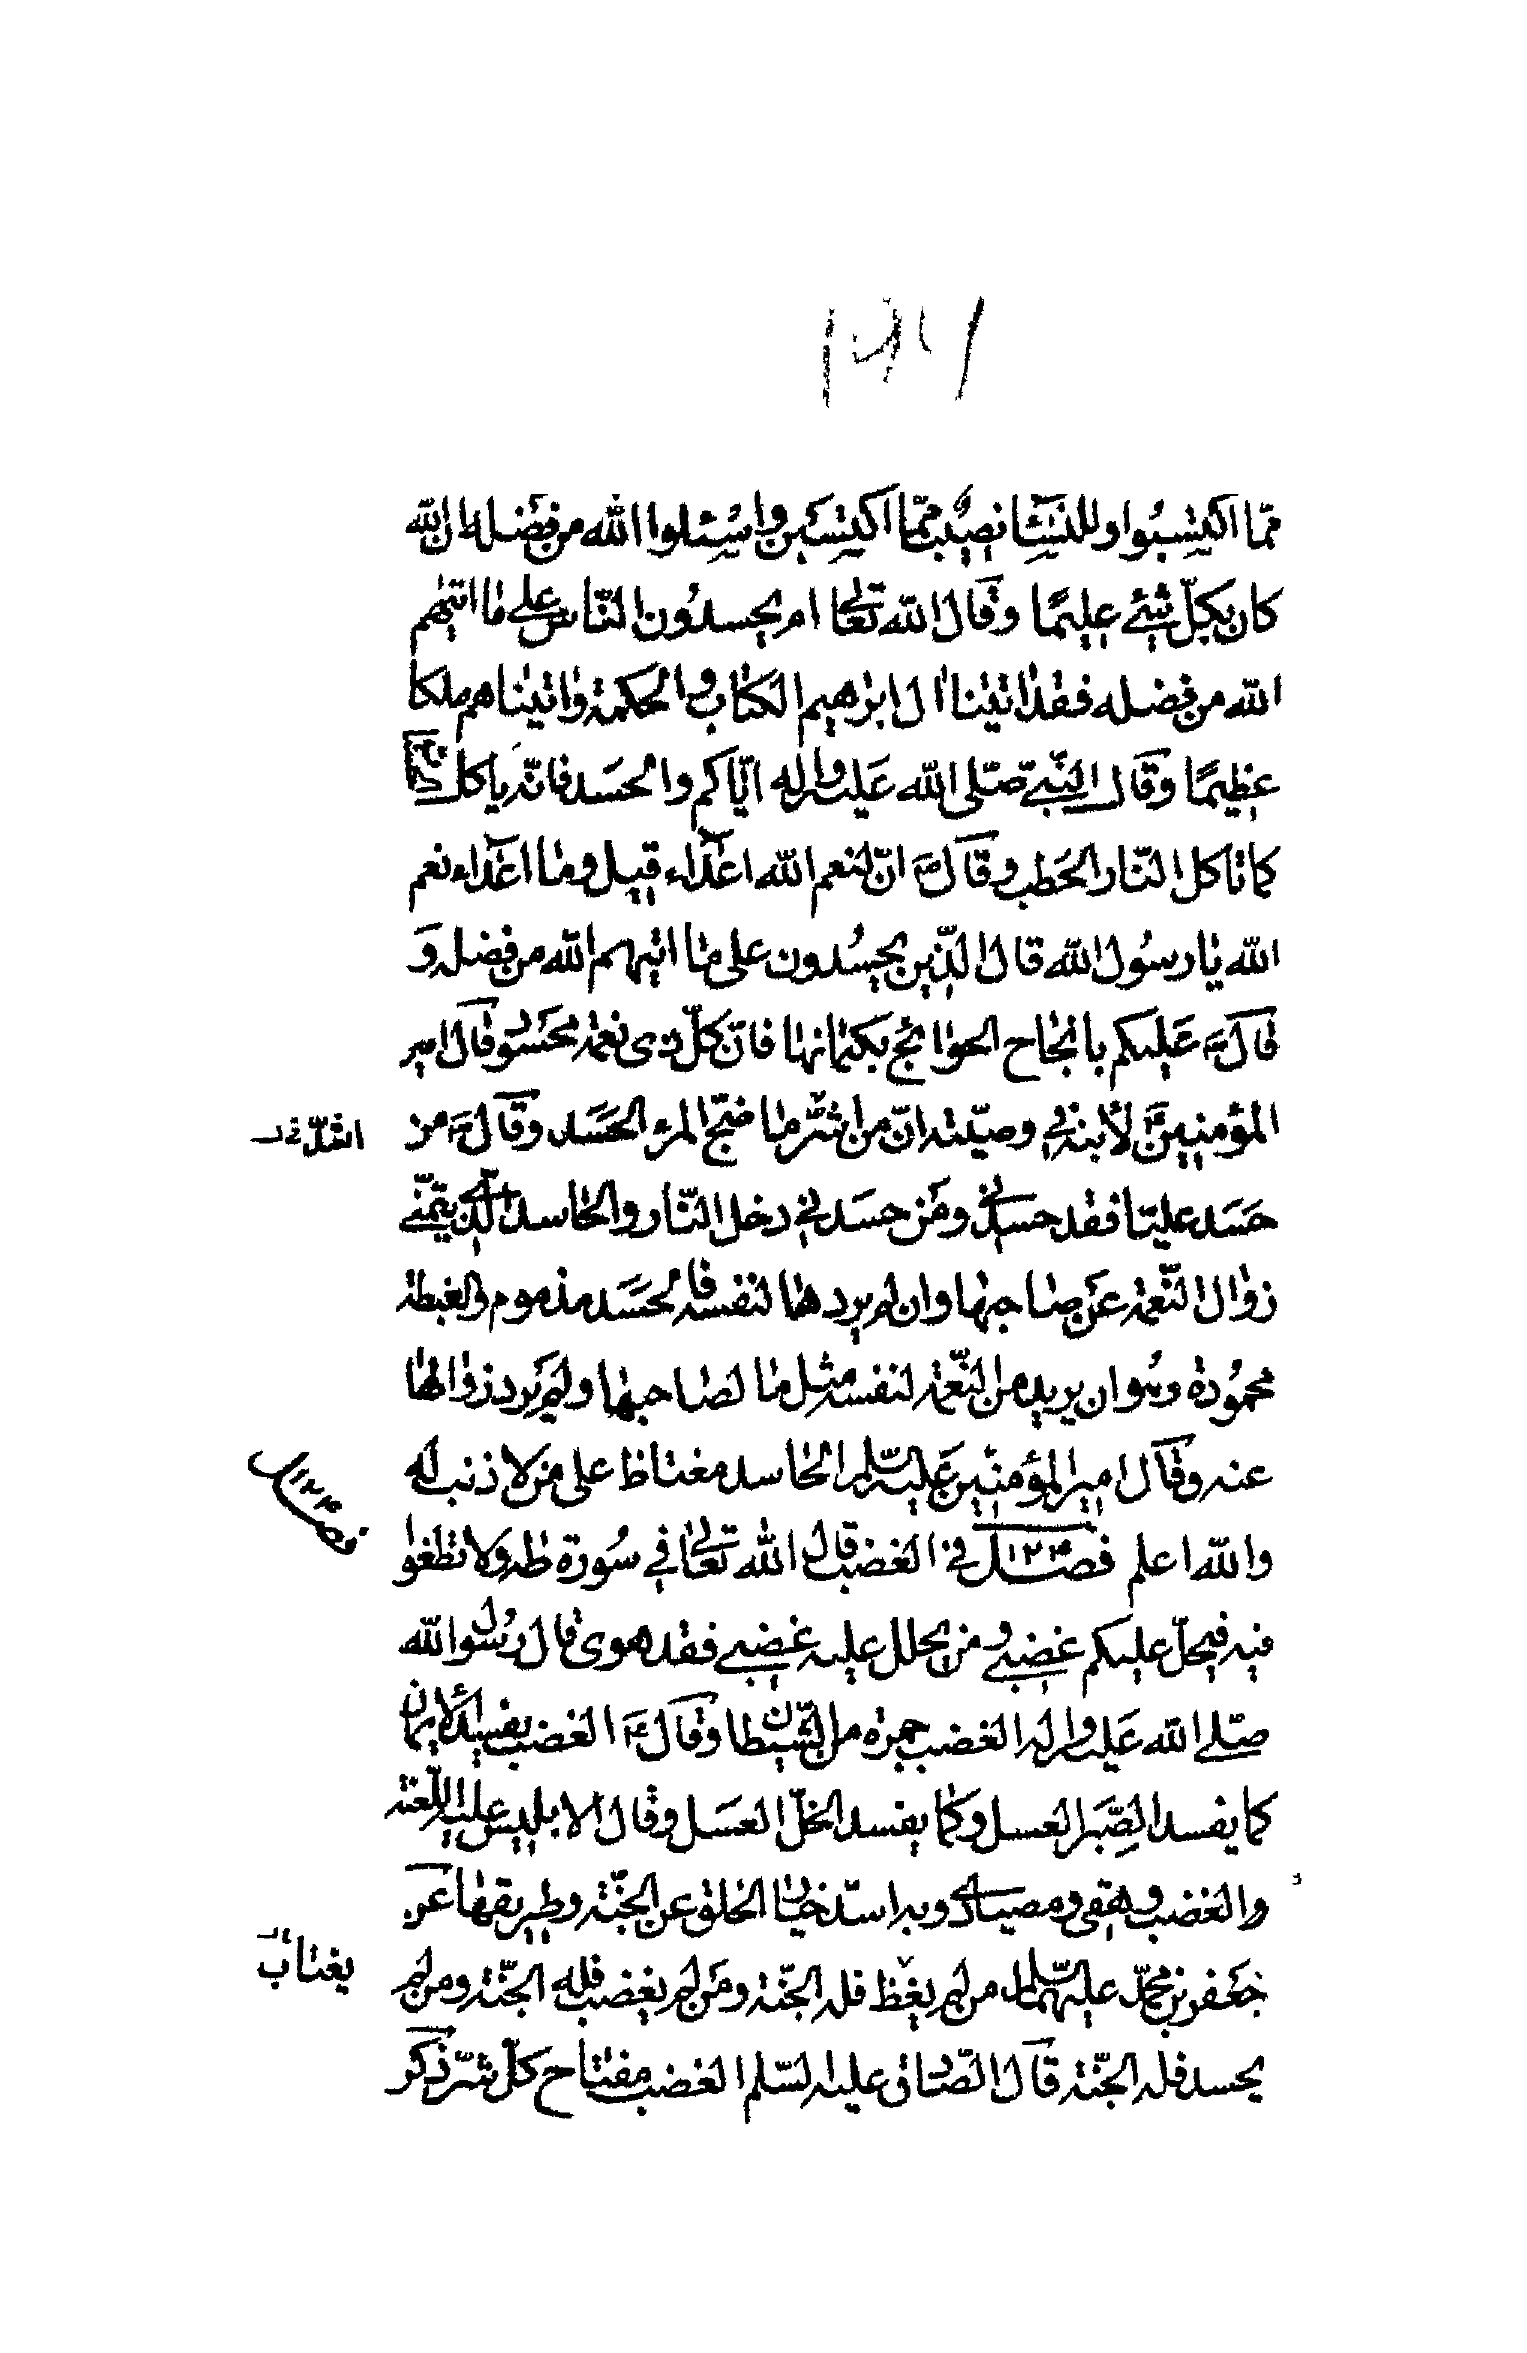 ممّا اكتسبوا وللنسٓا نصيب ممّا اكتسبن واسئلوا الله من فضله ان الله
كان بكلّ شيئ عليمًا وقال الله تعالى ام يحسدون النّاس على ما اتيهم
الله من فضله فقد اتينا ال ابرهيم الكتاب والحكمة واتيناهم ملكا
عظيمًا وقال النبيّ صلّى الله عليه واله ايّاكم والحسد فانّه ياكل الحسنات
كما تاكل النّار الحطب وقال ص انّ لنعم الله اعدٓاء قيل وما اعدٓاء نعم
الله يا رسول الله قال الّذين يحسدون على ما اتيهم الله من فضله و
قال ع عليكم بانجاح الحوائج بكتمانها فانّ كلّ ذى نعمة محسود وقال امير
المؤمنين ع لأبنه في وصيّته انّ من اشرّ ما ضجّ المرء الحسد وقال ع من
حسد عليّا فقد حسدني ومن حسدني دخل النّار والحاسد الّذي يتمنّى
زوال النّعمة عن صاحبها وان لم يردها لنفسه فالحسد مذموم والغبطة
محمودة وهو ان يريد من النّعمة لنفسه مثل ما لصاحبها ولم يرد زوالها
عنه وقال امير المؤمنين عليه السّلم الحاسد مغتاظ على من لا ذنب له
والله اعلم فصل ١٢٣ في الغضب قال الله تعالى في سورة طه ولا تطغوا
فيه فيحلّ عليكم غضبي ومن يحلل عليه غضبي فقد هوى قال رسول الله
صلّى الله عليه واله الغضب جمرة من الشّيطان وقال ع الغضب يفسد الأيمان
كما يفسد الصّبر العسل وكما يفسد الخلّ العسل وقال الابليس عليه اللّعنة
والغضب وهقى ومصيادى وبه استدّ خيار الخلق عن الجنّة وطريقها عن
جعفر بن محمّد عليهما السّلم من لم يغظ فله الجنّة ومن لم يغضب فله الجنّة ومن لم
يحسد فله الجنّة قال الصّادق عليه السّلم الغضب مفتاح كلّ شرّ ذكر
فصل ١٢٣
يغتاب